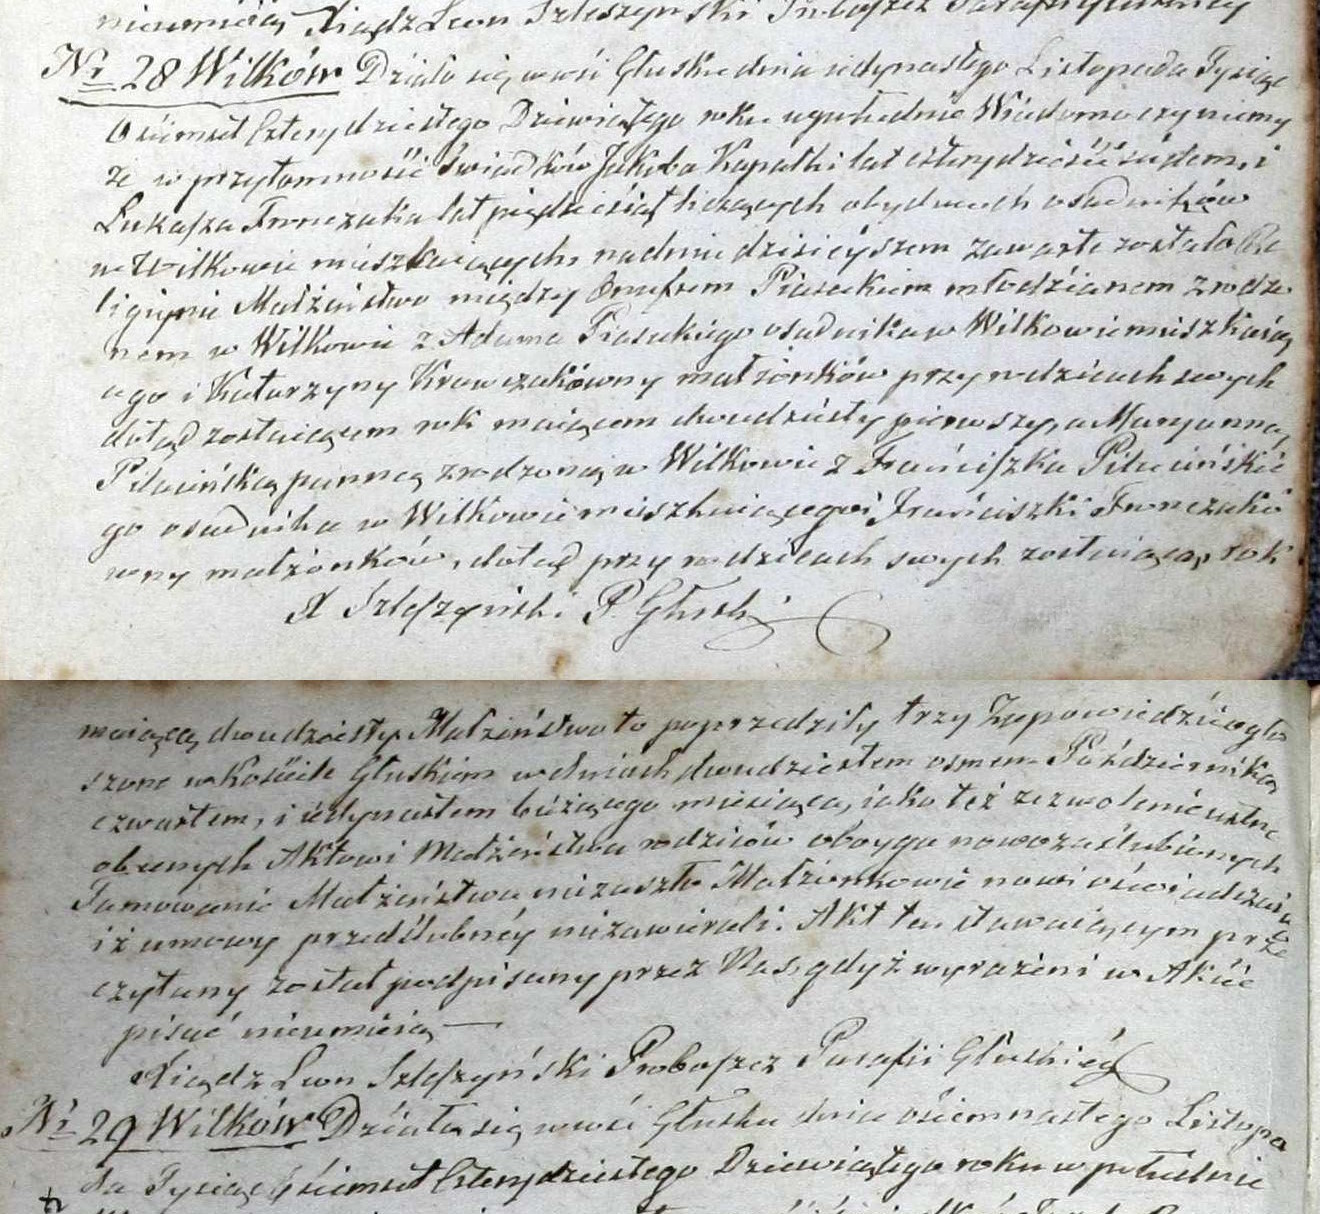 nieumieją Xiądz Leon Szleszyński Proboszcz Parafii Głuskiéy
Nr 28 Wilków Działo się w wsi Głusku dnia jedynastego Listopada Tysiąc
Ośiemset Czterydziestego Dziewiątego roku w południe Wiadomo czyniemy
że w przytomności świadków Jakuba Kapałki lat czterydzieści siedem, i
Łukasza Fronczaka lat pięćdziesiąt liczących obydwuch osadników
w Wilkowie mieszkaiących, na dniu dzisieyszem zawarte zostało Re
ligiynie Małżeństwo między Onufrem Piaseckiem młodzianem zrodzo
nem w Wilkowie z Adama Piaseckiego osadnika w Wilkowie mieszkaiąc
ego i Katarzyny Krawczakówny małżonków przy rodzicach swych
dotąd zostaiącem rok maiącem dwudziesty pierwszy, a Maryanną
Pilucińską panną zrodzoną w Wilkowie z Franciszka Pilucińskie
go osadnika w Wilkowie mieszkaiącego i Franciszki Fronczakó
wny małżonków, dotąd przy rodzicach swych zostaiącą, rok
X Szleszyński P Głuski
maiącą dwudziesty. Małżeństwo to poprzedziły trzy Zapowiedzi ogło
szone w Kościele Głuskiem w dniach dwudziestem osmem Października,
czwartem, i jedynastem bieżącego miesiąca, iako też zezwolenie ustne
obecnych Aktowi Małżeństwa rodziców oboyga nowozaślubionych
Tamowanie Małżeństwa nie zaszło Małżonkowie nowi oświadczaią
iż umowy przedślubnéy nie zawierali. Akt ten stawaiącym prze
czytany został podpisany przez Nas, gdyż wyrażeni w Akcie
pisać nieumieią
Xiądz Leon Szleszyński Proboszcz Parafii Głuskiéy
Nr 29 Wilków Działo się w wsi Głusku dnia ośiemnastego Listopa
da Tysiąc Ośiemset Czterydziestego Dziewiątego roku w południe